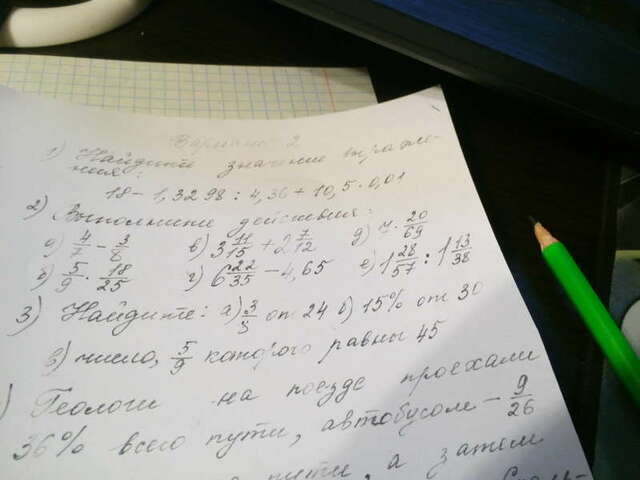 Вариант 2
1) Найдите значение выраже-
ния:
18 - 1,3298 : 4,36 + 10,5 · 0,01
2) Выполните действия:
а) 4/7 - 3/8 в) 3 11/15 + 2 7/12 д) 20/69
б) 5/9 · 18/25 г) 6 22/35 - 4,65 е) 1 28/57 : 1 13/38
3) Найдите: а) от 24 б) 15% от 30
в) число, 5/9 которого равны 45
) Геологи на поезде проехали
36% всего пути, автобусом - 9/26
пути, а затем